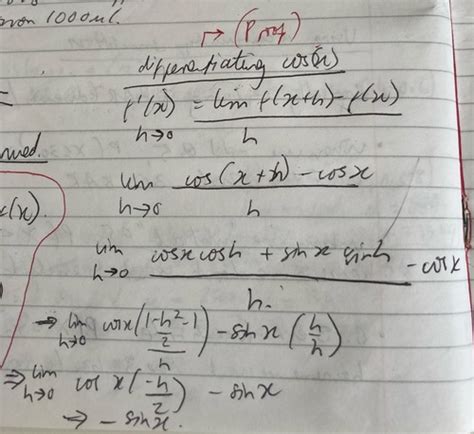 from 1000µL
→ (Proof)
differentiating cos(x)
f'(x) = lim f(x+h) - f(x)
h→0 h
lim cos(x+h) - cosx
h→0 h
lim cosx cosh + sin x sinh - cosx
h→0 h.
⇒ lim cosx(1-h²/2-1)/h - sin x (h/h)
h→0
⇒ lim cos x(-h/2) - sinx
h→0
→ - sinx.
(x).